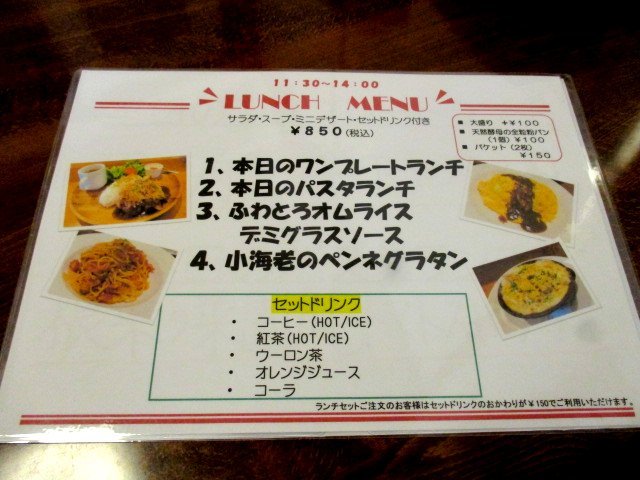 11:30～14:00
LUNCH MENU
サラダ・スープ・ミニデザート・セットドリンク付き
￥850(税込)
■ 大盛り +￥100
■ 天然酵母の全粒粉パン
(1個)￥100
■ バケット(2枚)
￥150
1、本日のワンプレートランチ
2、本日のパスタランチ
3、ふわとろオムライス
デミグラスソース
4、小海老のペンネグラタン
セットドリンク
・ コーヒー(HOT/ICE)
・ 紅茶(HOT/ICE)
・ ウーロン茶
・ オレンジジュース
・ コーラ
ランチセットご注文のお客様はセットドリンクのおかわりが￥150でご利用いただけます。